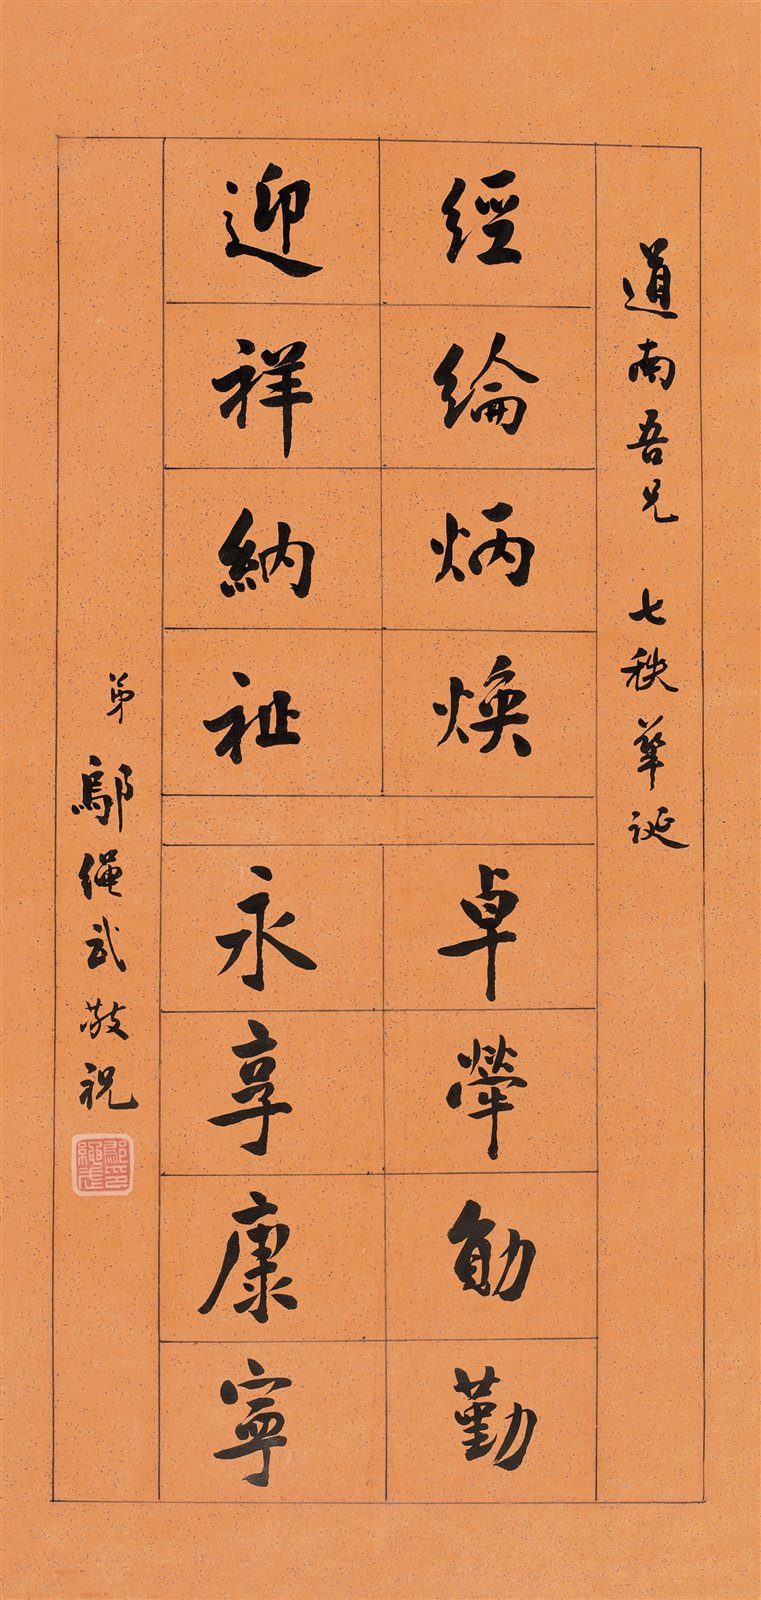 道南吾兄 七秩華誕
經綸炳煥 卓犖勛勤
迎祥納祉 永享康寧
弟 鄔繩武敬祝
鄔印繩武